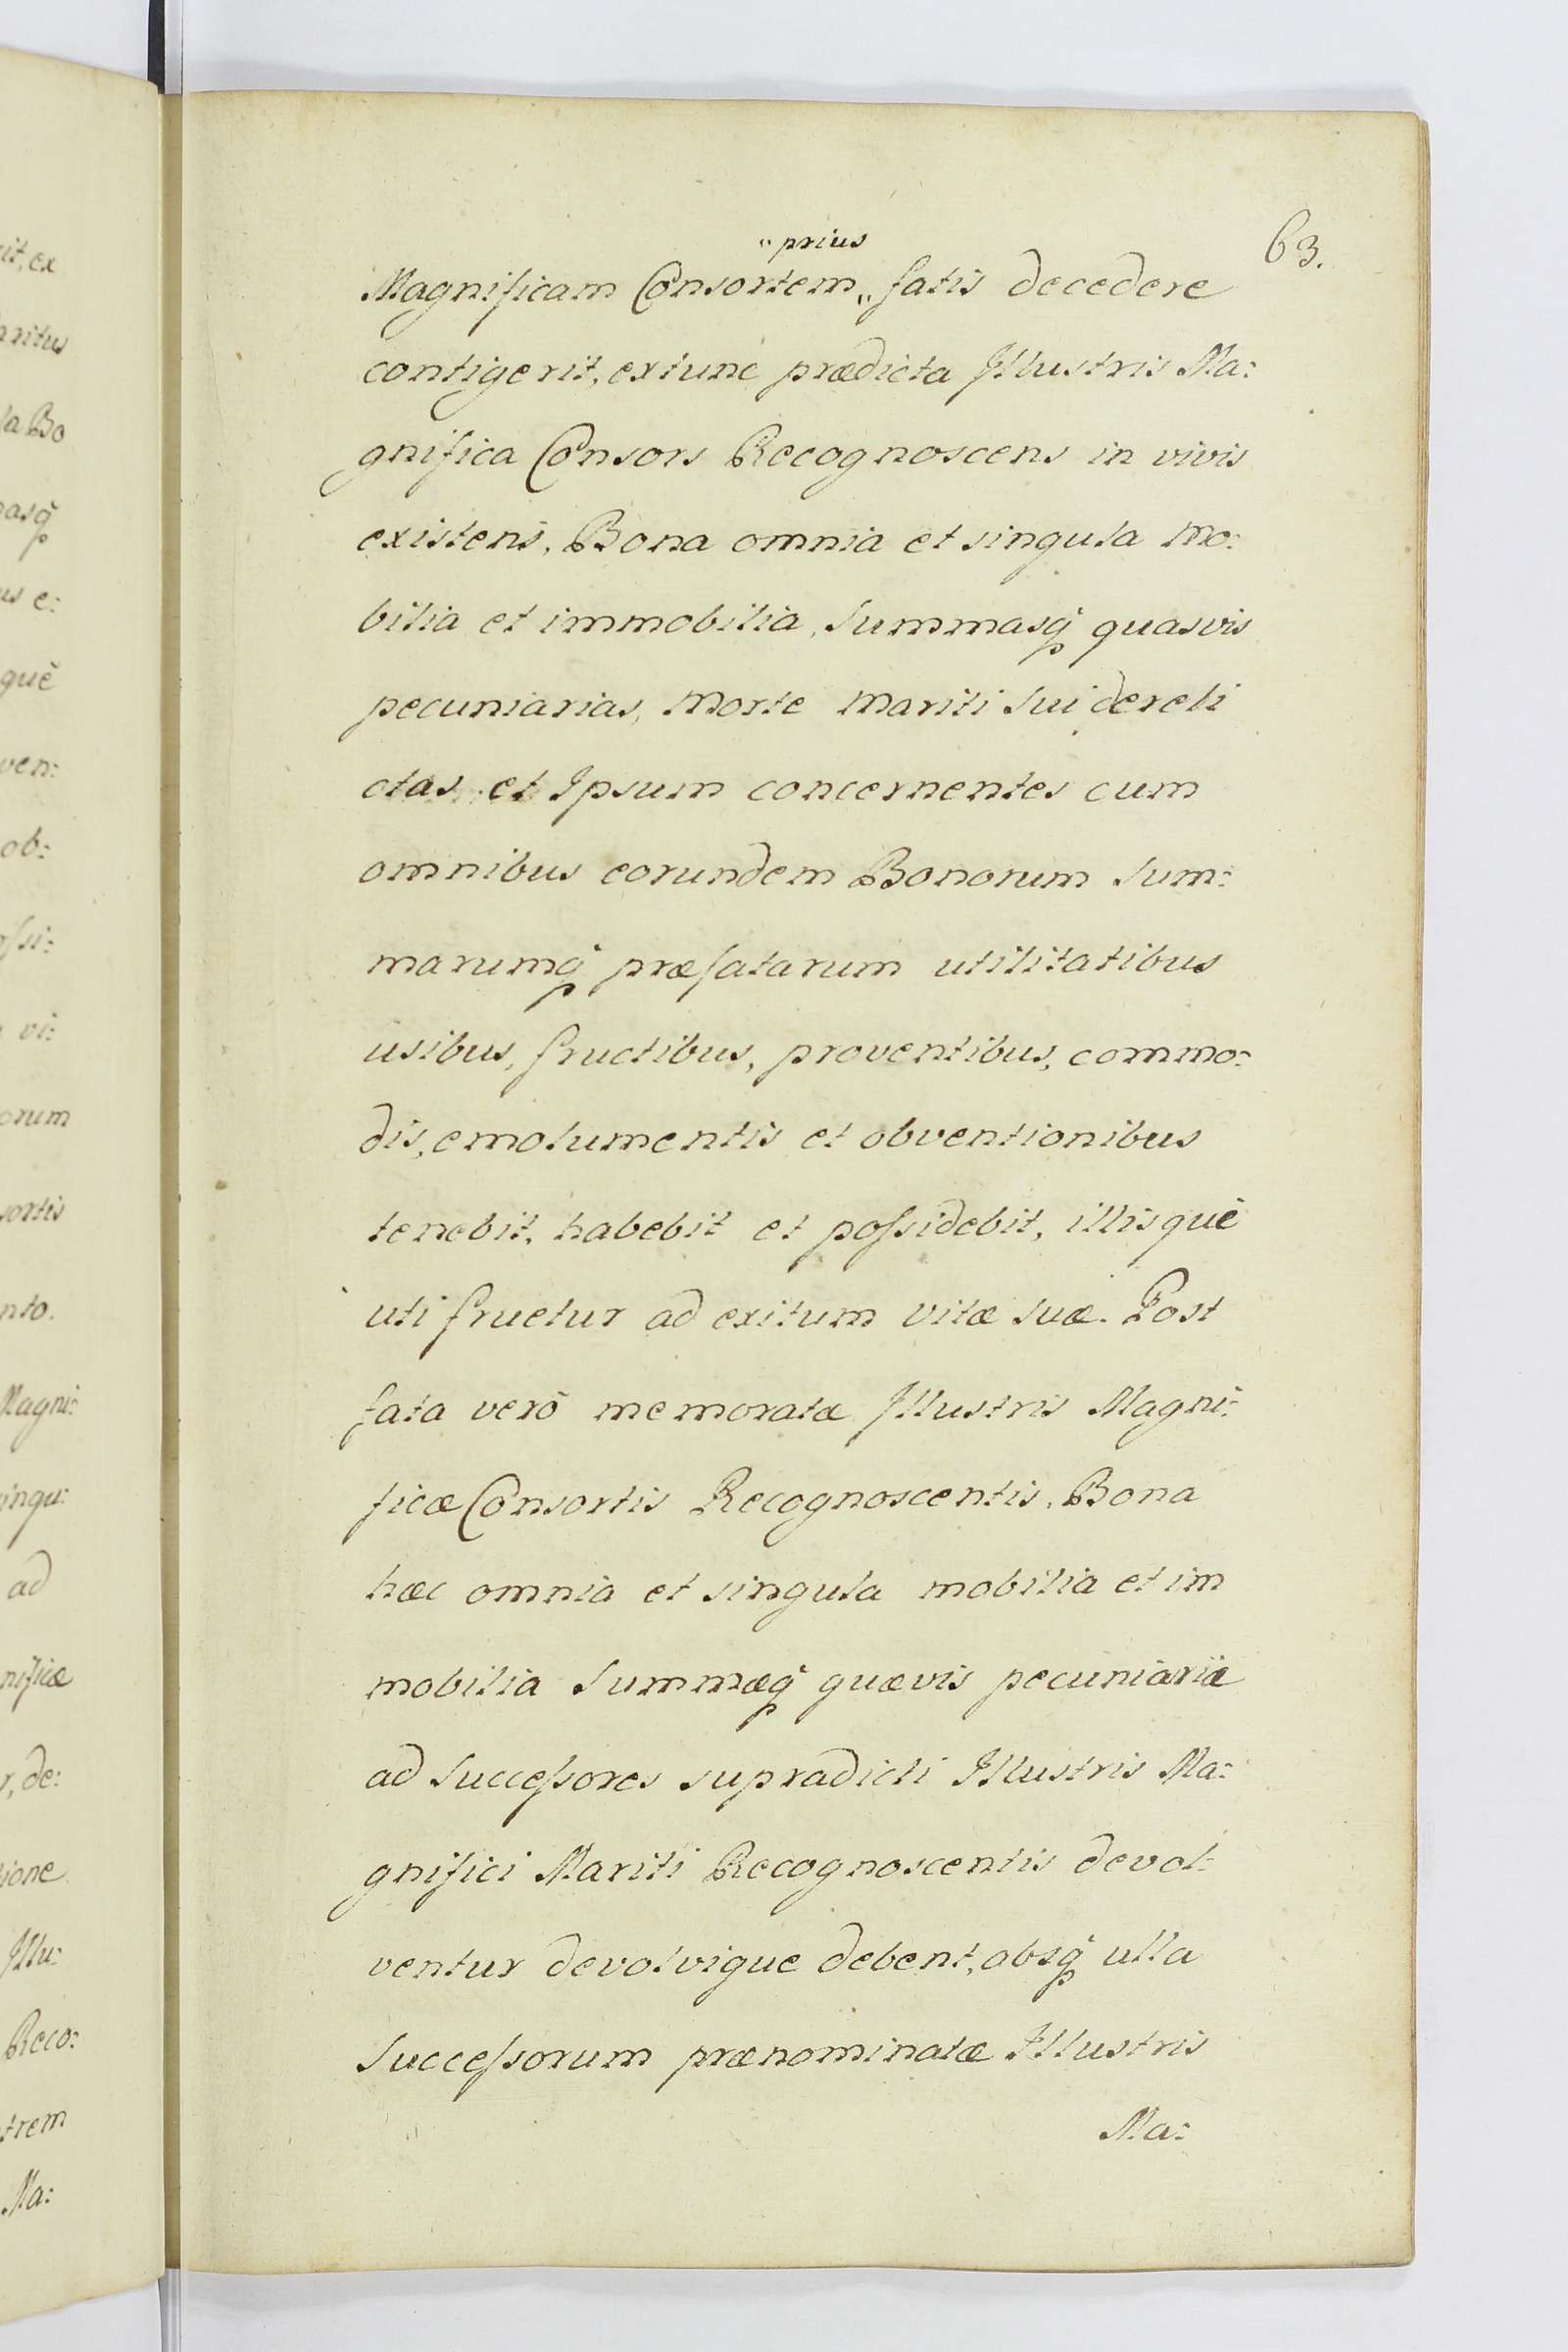 63.
"prius
Magnificam Consortem,, fatis decedere
contigerit, extunc prædicta Illustris Ma:
gnifica Consors Recognoscens in vivis
existens, Bona omnia et singula Mo:
bilia et immobilia, Summasq̃ quasvis
pecuniarias, Morte Mariti Sui dereli
ctas et Ipsum concernentes cum
omnibus eorundem Bonorum Sum:
marumq̃ præfatarum utilitatibus
usibus, fructibus, proventibus, commo:
dis, emolumentis et obventionibus
tenebit, habebit et poſsidebit, illisquè
uti fruetur ad exitum vitæ suæ. Post
fata verò memoratæ Illustris Magni:
ficæ Consortis Recognoscentis, Bona
hæc omnia et singula mobilia et im
mobilia Summæq̃ quævis pecuniariæ
ad Succeſsores supradicti Illustris Ma:
gnifici Mariti Recognoscentis devol:
ventur devolvique debent, absq̃ ulla
Succeſsorum prænominatæ Illustris
Ma: